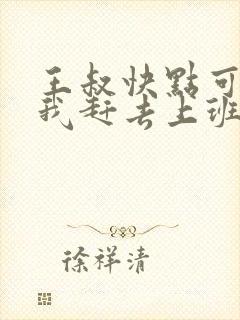 王叔快點可
我赶去上班
徐祥清